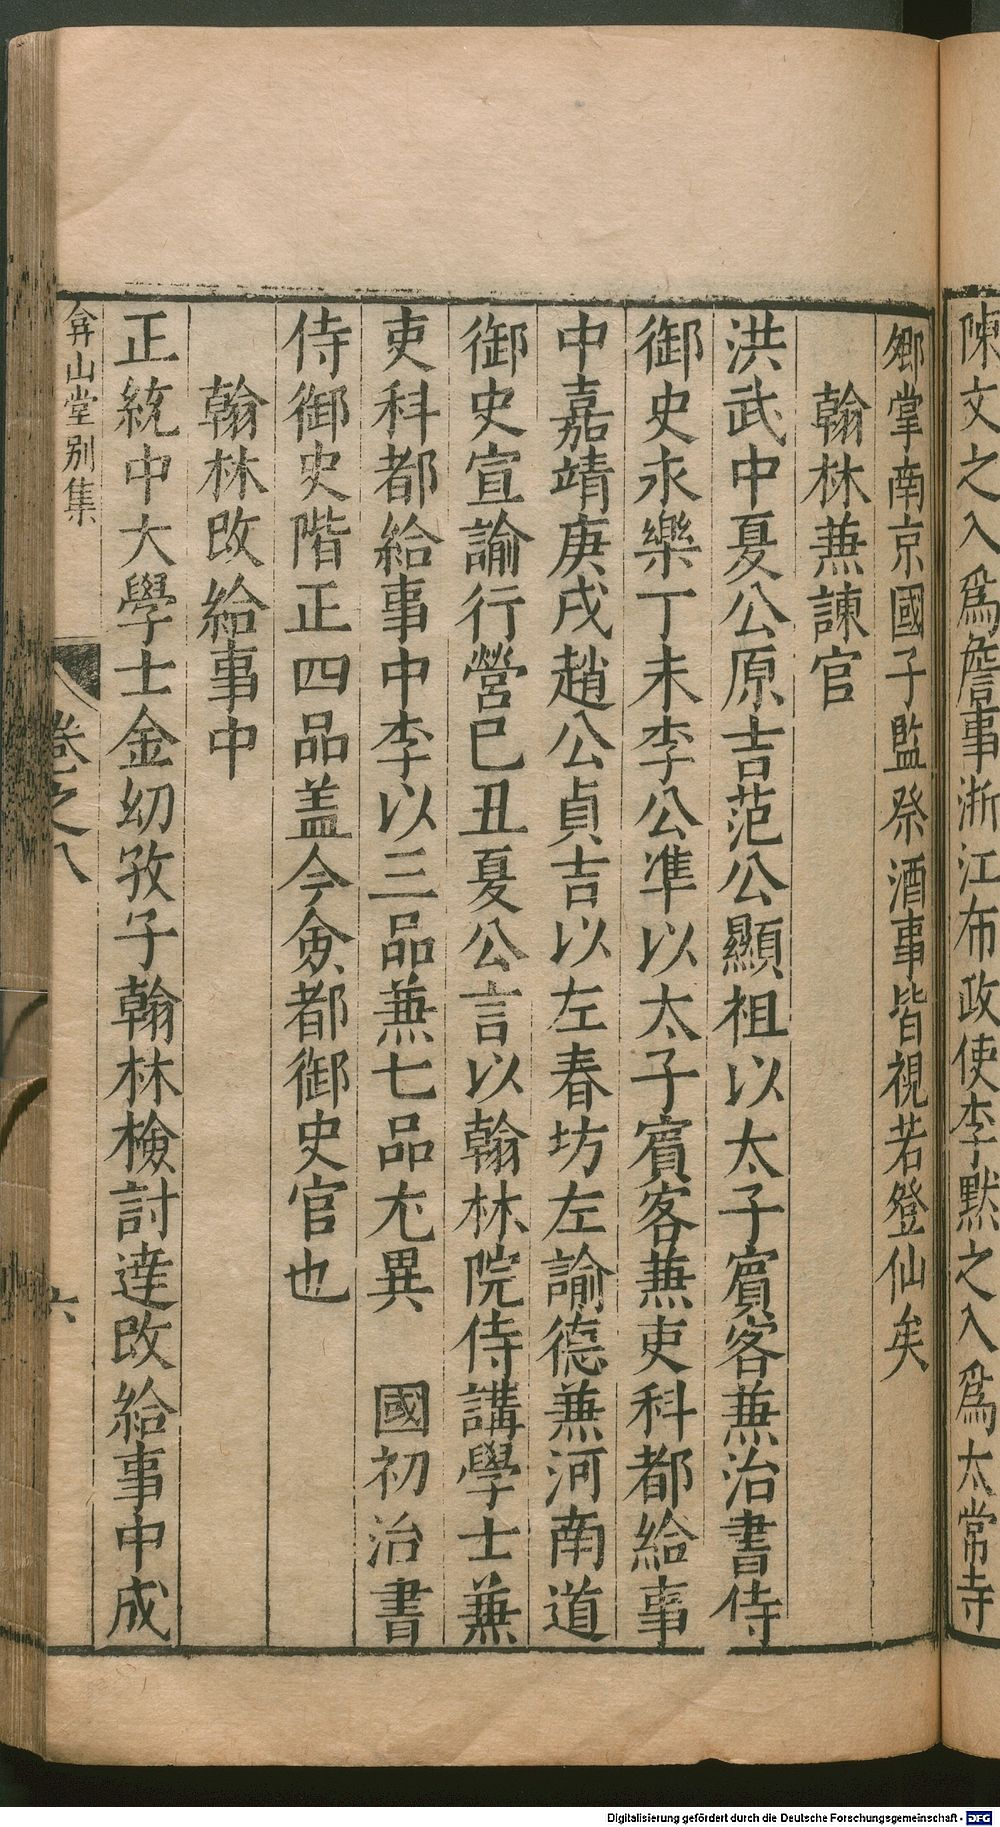 陳文之入爲詹事浙江布政使李默之入爲太常寺
卿掌南京國子監祭酒事皆視若登仙矣
翰林兼諫官
洪武中夏公原吉范公顯祖以太子賓客兼治書侍
御史永樂丁未李公準以太子賓客兼吏科都給事
中嘉靖庚戌趙公貞吉以左春坊左諭德兼河南道
御史宣諭行營巳丑夏公言以翰林院侍講學士兼
吏科都給事中李以三品兼七品尤異 國初治書
侍御史階正四品盖今僉都御史官也
翰林改給事中
正統中大學士金幼孜子翰林檢討達改給事中成
弇山堂別集
卷之八
六
Digitalisierung gefördert durch die Deutsche Forschungsgemeinschaft - DFG